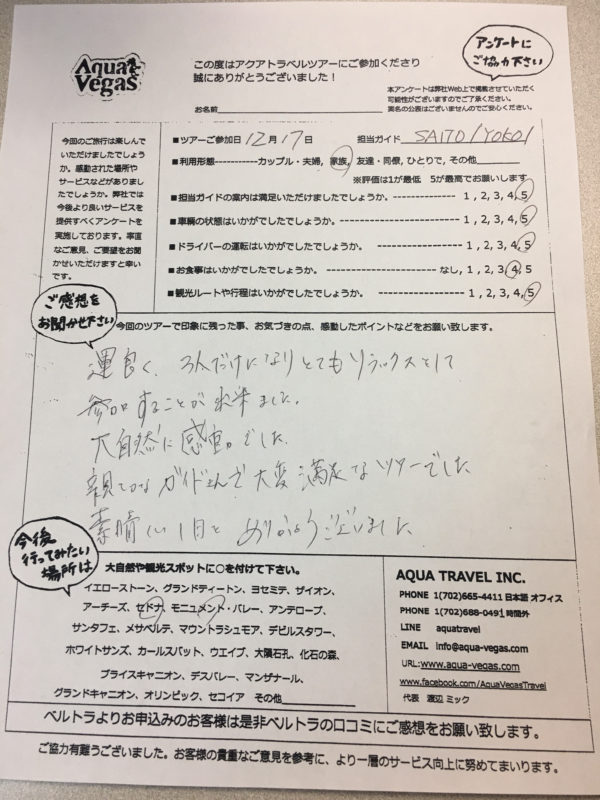 Aqua Vegas
この度はアクアトラベルツアーにご参加くださり
誠にありがとうございました！
アンケートに
ご協力下さい
本アンケートは弊社Web上で掲載させていただく
可能性がございますのでご了承ください。
実名の公表はございませんのでご安心ください。
お名前
今回のご旅行は楽しんで
いただけましたでしょう
か。感動された場所や
サービスなどがありまし
たでしょうか。弊社では
今後より良いサービスを
提供すべくアンケートを
実施しております。率直
なご意見、ご要望をお聞
かせいただけますと幸い
です。
■ツアーご参加日 12月 17日 担当ガイド SAITO/YOKO/
■利用形態-----------カップル・夫婦, 家族, 友達・同僚, ひとりで, その他
※評価は1が最低 5が最高でお願いします
■担当ガイドの案内は満足いただけましたでしょうか。---------- 1, 2, 3, 4, 5
■車輌の状態はいかがでしたでしょうか。-------------------- 1, 2, 3, 4, 5
■ドライバーの運転はいかがでしたでしょうか。---------------- 1, 2, 3, 4, 5
■お食事はいかがでしたでしょうか。-------------------- なし, 1, 2, 3, 4, 5
■観光ルートや行程はいかがでしたでしょうか。-------------- 1, 2, 3, 4, 5
ご感想を
お聞かせ下さい
今回のツアーで印象に残った事、お気づきの点、感動したポイントなどをお願い致します。
運良く、3人だけになりとてもリラックスして
参加することが出来ました。
大自然に感動でした。
親切なガイドさんで大変満足なツアーでした
素晴しい1日を ありがとうございました
今後
行ってみたい
場所は
大自然や観光スポットに○を付けて下さい。
イエローストーン、グランドティートン、ヨセミテ、ザイオン、
アーチーズ、セドナ、モニュメント・バレー、アンテロープ、
サンタフェ、メサベルテ、マウントラシュモア、デビルスタワー、
ホワイトサンズ、カールスバット、ウエイブ、大隕石孔、化石の森、
ブライスキャニオン、デスバレー、マンザナール、
グランドキャニオン、オリンピック、セコイア その他
AQUA TRAVEL INC.
PHONE 1(702)665-4411 日本語 オフィス
PHONE 1(702)688-0491 時間外
LINE aquatravel
EMAIL info@aqua-vegas.com
URL:www.aqua-vegas.com
www.facebook.com/AquaVegasTravel
代表 渡辺 ミック
ベルトラよりお申込みのお客様は是非ベルトラの口コミにご感想をお願い致します。
ご協力有難うございました。お客様の貴重なご意見を参考に、より一層のサービス向上に努めてまいります。